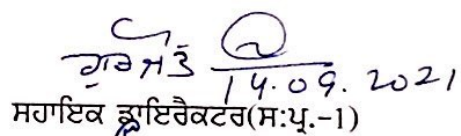 ਗੁਰਜੀਤ
14.09.2021
ਸਹਾਇਕ ਡਾਇਰੈਕਟਰ(ਸ:ਪ੍ਰ.-1)